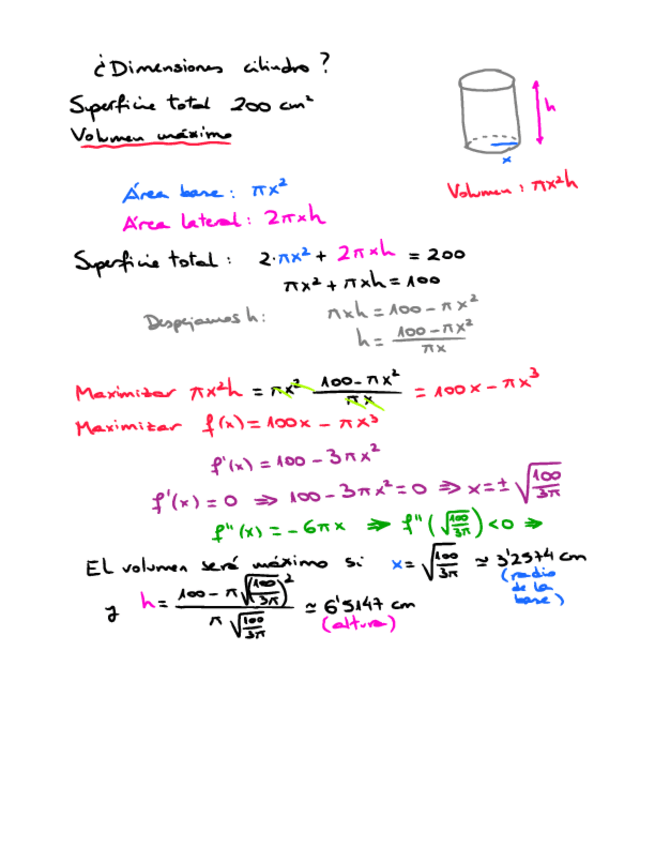 ¿Dimensiones cilindro?
Superficie total 200 cm²
Volumen máximo
h
x
Área base: πx²
Volumen: πx²h
Área lateral: 2πxh
Superficie total: 2·πx² + 2πxh = 200
πx² + πxh = 100
Despejamos h: πxh = 100 - πx²
h = (100 - πx²)/(πx)
Maximizar πx²h = πx² (100 - πx²)/(πx) = 100x - πx³
Maximizar f(x) = 100x - πx³
f'(x) = 100 - 3πx²
f'(x) = 0 ⇒ 100 - 3πx² = 0 ⇒ x = ±√(100/3π)
f''(x) = -6πx ⇒ f''(√(100/3π)) < 0 ⇒
El volumen será máximo si x = √(100/3π) ≃ 3'2574 cm
(radio
de la
base)
y h = (100 - π(√(100/3π))²)/(π√(100/3π)) ≃ 6'5147 cm
(altura)